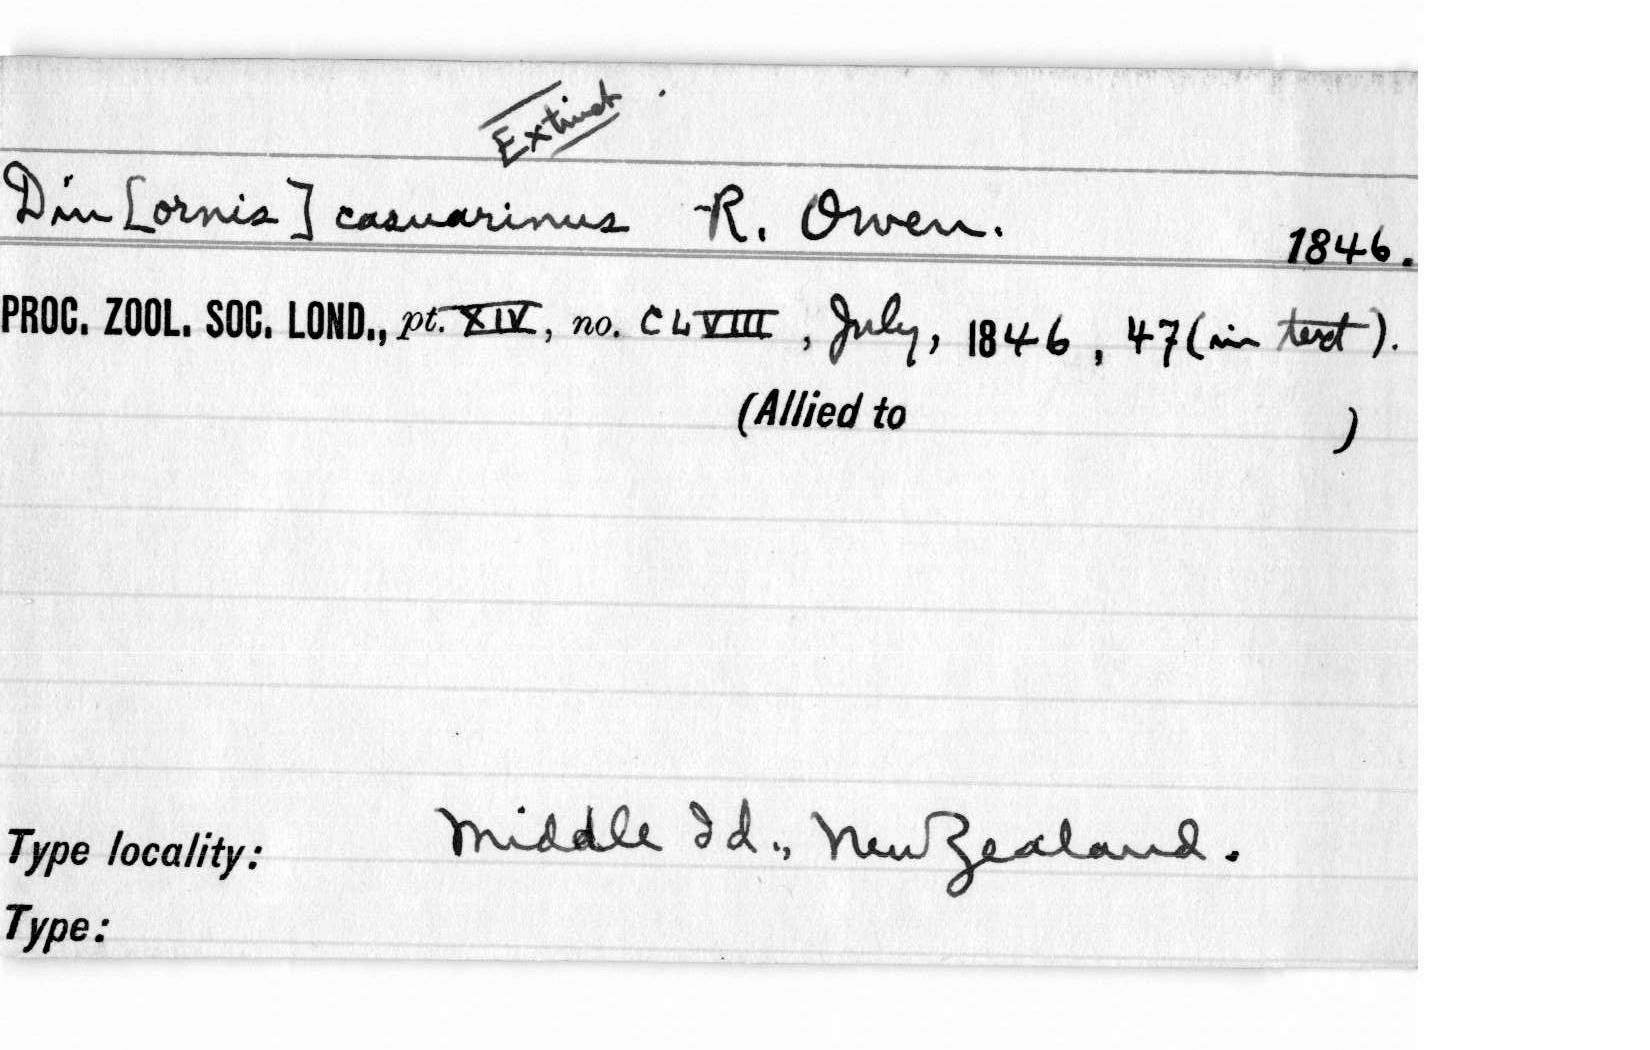 Extinct.
Din[ornis] casuarinus R. Owen. 1846.
PROC. ZOOL. SOC. LOND., pt. XIV, no. CLVIII, July, 1846, 47 (in text).
(Allied to )
Type locality: Middle Id., New Zealand.
Type: